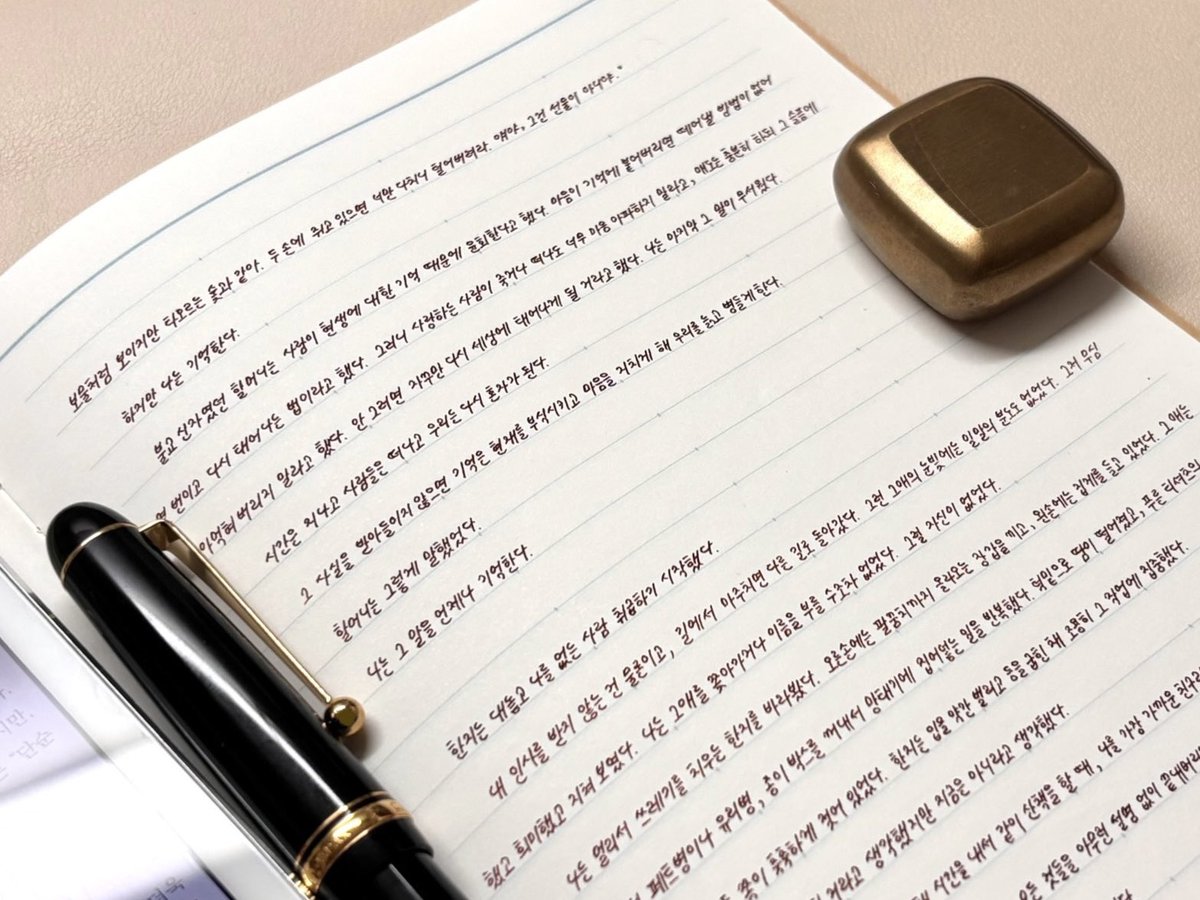 보물처럼 보이지만 타오르는 숯과 같아. 두 손에 쥐고 있으면 너만 다치니 털어버려라. 얘야, 그건 선물이 아니야."
하지만 나는 기억한다.
불교 신자였던 할머니는 사람이 현생에 대한 기억 때문에 윤회한다고 했다. 마음이 기억에 붙어버리면 떼어낼 방법이 없어
몇 번이고 다시 태어나는 법이라고 했다. 그러니 사랑하는 사람이 죽거나 떠나도 너무 마음 아파하지 말라고, 애도는 충분히 하되 그 슬픔에
먹혀 버리지 말라고 했다. 안 그러면 자꾸만 다시 세상에 태어나게 될 거라고 했다. 나는 마지막 그 말이 무서웠다.
시간은 지나고 사람들은 떠나고 우리는 다시 혼자가 된다.
그 사실을 받아들이지 않으면 기억은 현재를 부식시키고 마음을 지치게 해 우리를 늙고 병들게 한다.
할머니는 그렇게 말했었다.
나는 그 말을 언제나 기억한다.
한지는 대놓고 나를 없는 사람 취급하기 시작했다.
내 인사를 받지 않는 건 물론이고, 길에서 마주치면 다른 길로 돌아갔다. 그런 그애의 눈빛에는 일말의 분노도 없었다. 그저 무심
했고 희미했고 지쳐 보였다. 나는 그애를 쫓아가거나 이름을 부를 수조차 없었다. 그럴 자신이 없었다.
나는 멀리서 쓰레기를 치우는 한지를 바라봤다. 오른손에는 팔꿈치까지 올라오는 장갑을 끼고, 왼손에는 집게를 들고 있었다. 그애는
페트병이나 유리병, 종이 박스를 꺼내서 망태기에 집어넣는 일을 반복했다. 턱밑으로 땀이 떨어졌고, 푸른 티셔츠의
등이 축축하게 젖어 있었다. 한지는 입을 약간 벌리고 등을 굽힌 채 조용히 그 작업에 집중했다.
거라고 생각했지만 지금은 아니라고 생각했다.
시간을 내서 같이 산책을 할 때, 나를 가장 가까운 친구라
모든 것들을 아무런 설명 없이 끝내버리